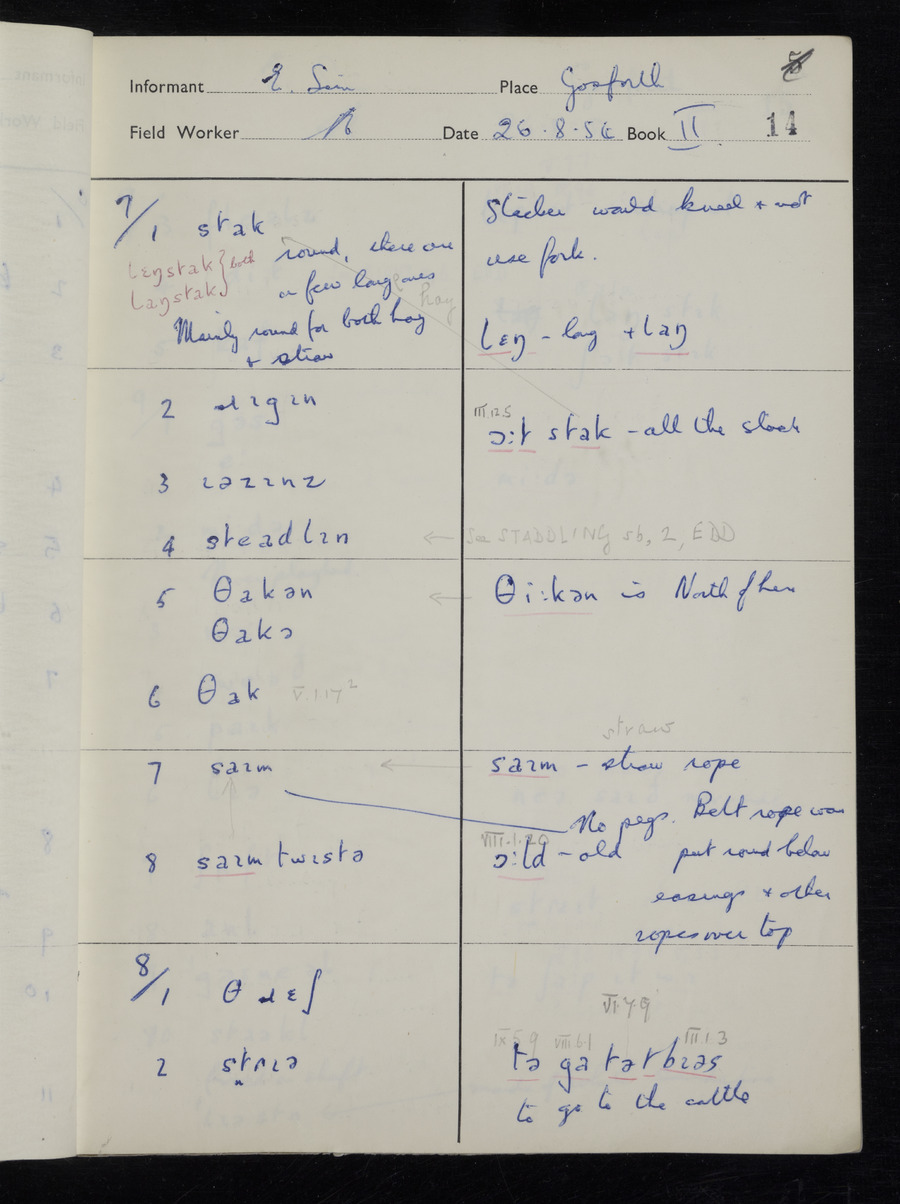 Informant E. Sim Place Gosforth
Field Worker Date 26.8.54 Book II 14
7/1 stak
lɛŋstak } both
laŋstak
round, there are
a few long ones
hay
Mainly round for both hay
+ straw
Sticker would kneel + not
use fork.
lɛŋ - long + laŋ
2 ɹɪgɪn
III.12.5
ɔ:t stak - all the stack
3 ɪəzɪnz
4 steadlɪn
← See STADDLING sb, 2, EDD
5 θakən
θakə
← θi:kən is North of here
6 θak V.1.17²
straw
7 saɪm
← saɪm - straw rope
No pegs. Belt rope was
put round below
easings + other
ropes over top
8 saɪmtwɪstə
VIII.1.20
ɔ:ld - old
8/1 θɹɛʃ
2 stɹɪə
VI.7.9
IX.5.9 VIII.6.1 III.1.3
tə ga tət bɪəs
to go to the cattle